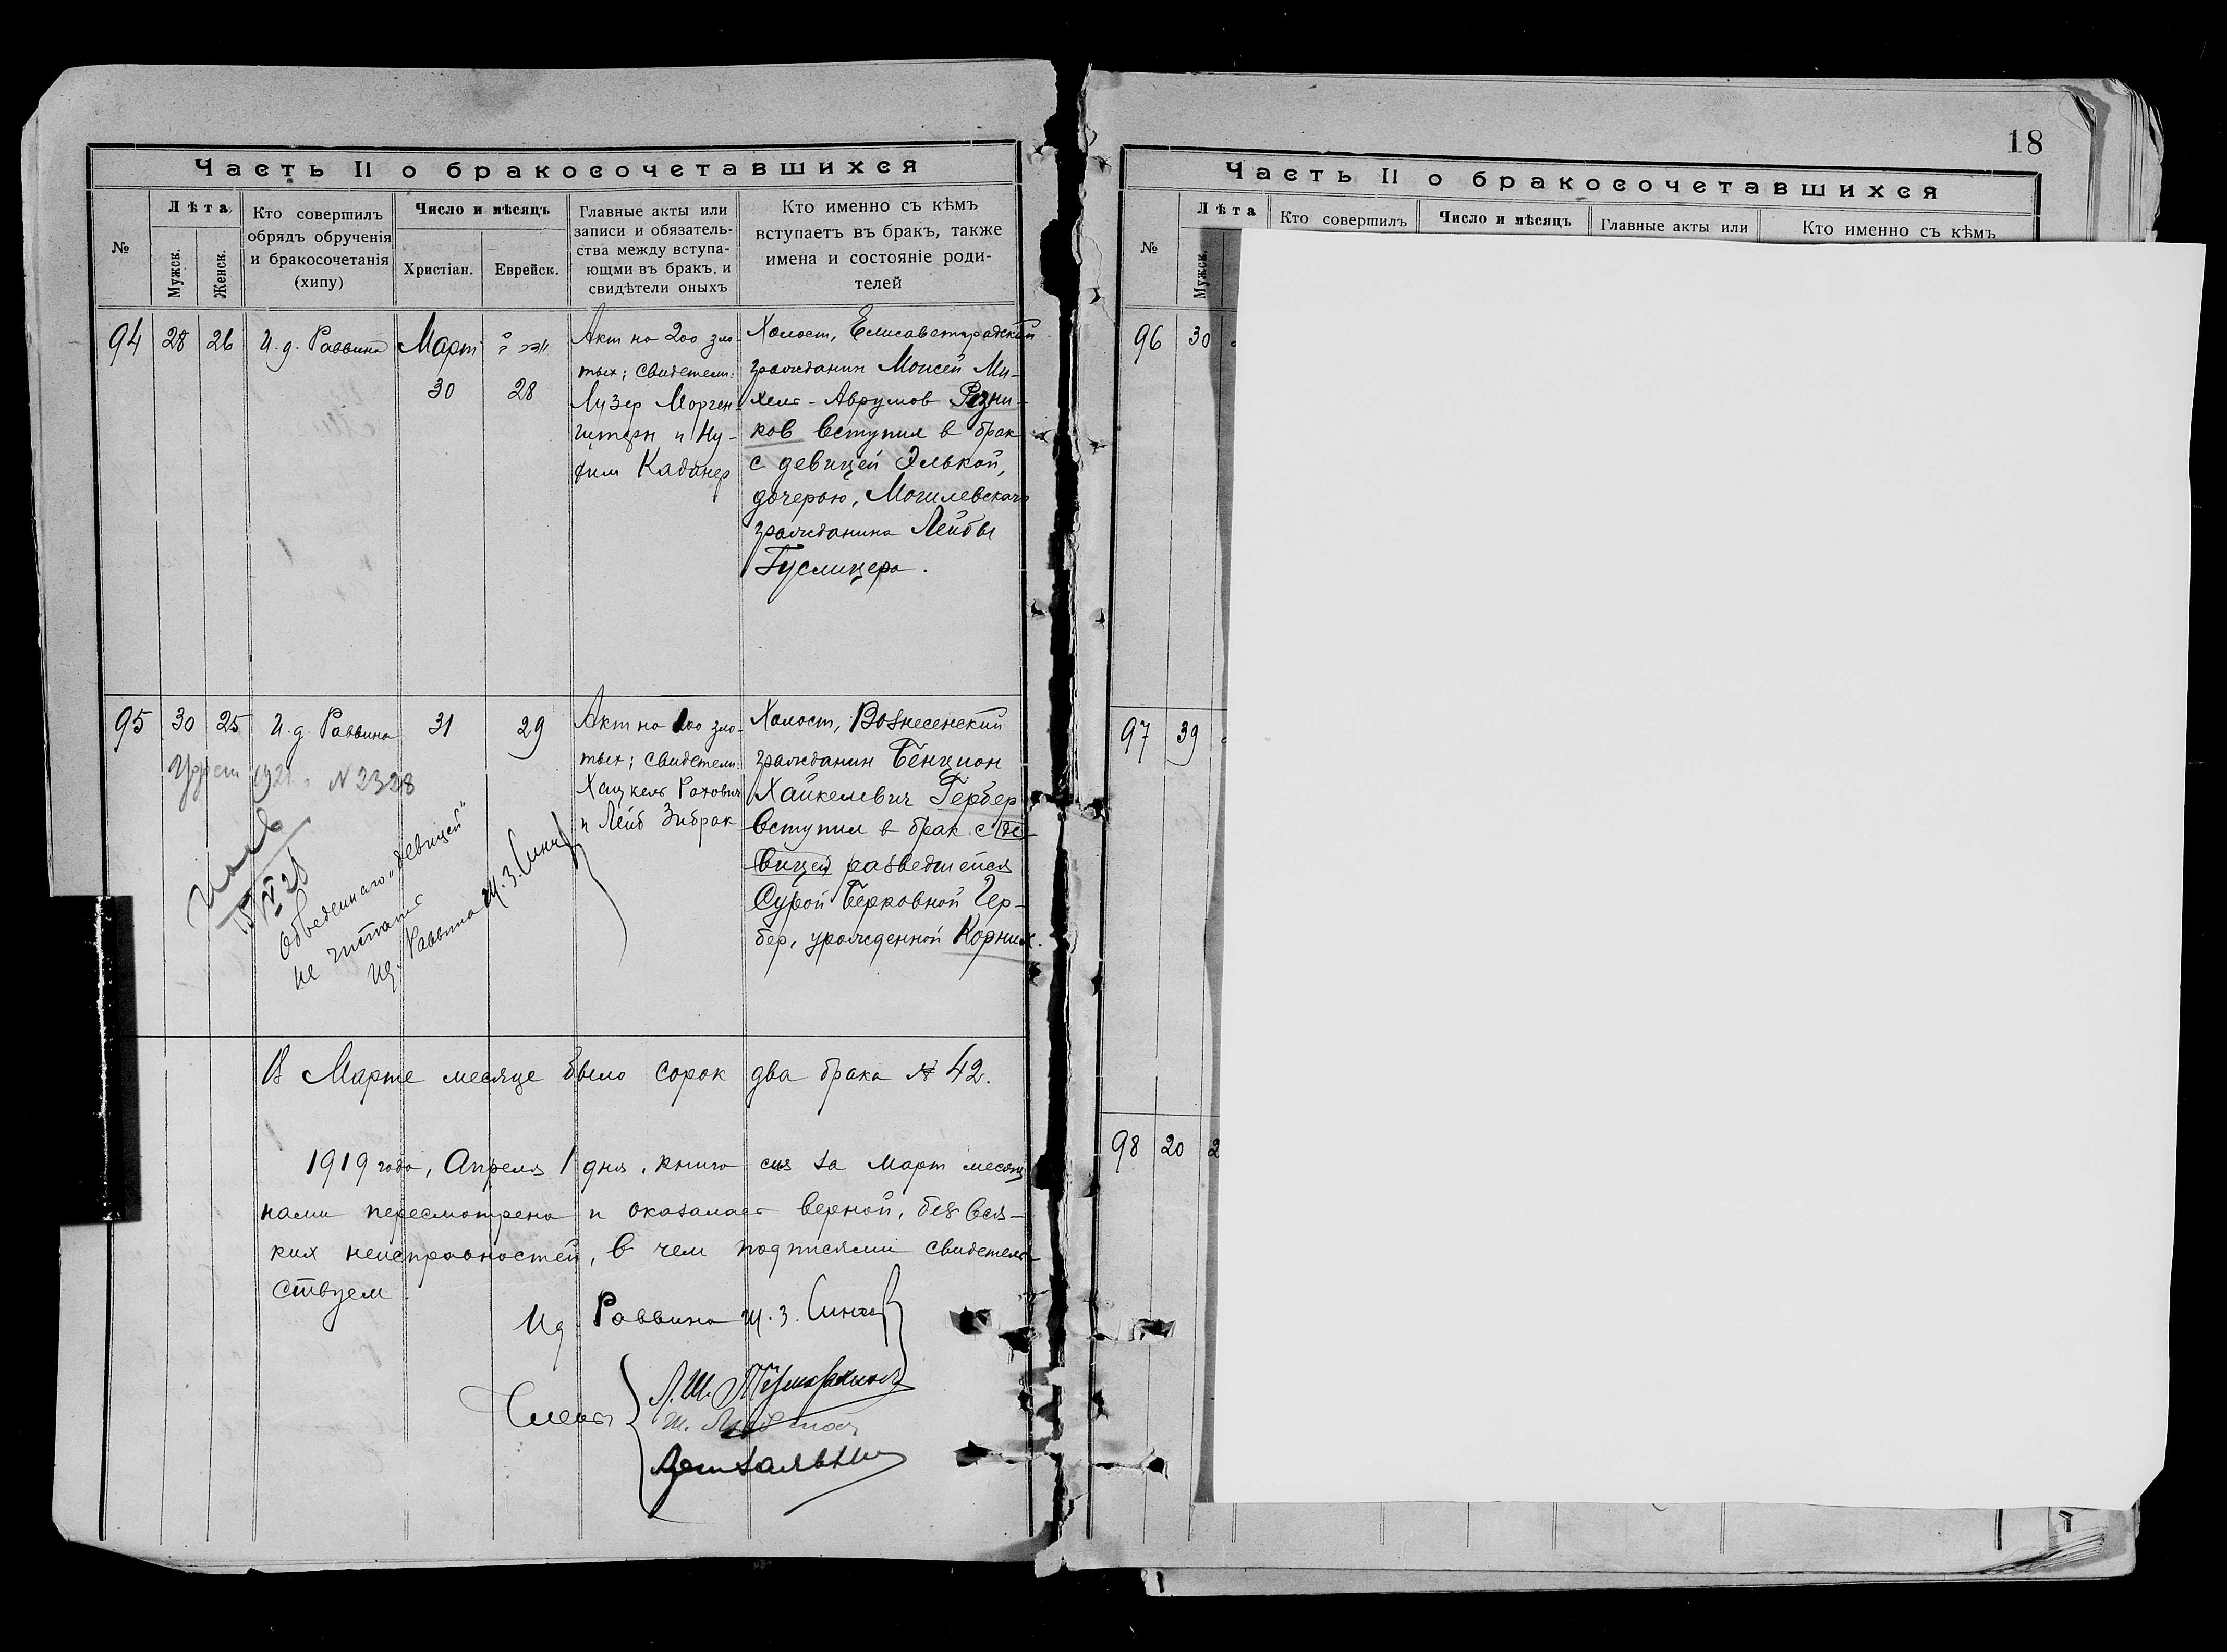 Часть II о бракосочетавшихся
№
Лѣта
Мужск.
Женск.
Кто совершилъ
обрядъ обрученія
и бракосочетанія
(хипу)
Число и мѣсяцъ
Христіан.
Еврейск.
Главные акты или
записи и обязатель-
ства между вступа-
ющми въ бракъ, и
свидѣтели оныхъ
Кто именно съ кѣмъ
вступаетъ въ бракъ, также
имена и состояніе роди-
телей
94
28
26
И. д. Раввина
Март
30
28
Акт на 200 зло-
тых; свидетели:
Лузер Морген-
штерн и Ну-
хим
Холост, Елисаветградский
гражданин Моисей Ми-
хель-Аврумов Резни-
ков вступил в брак
с девицей Элькой,
дочерью, Могилевскаго
гражданина Лейбы
Гуслицера.
95
30
25
И. д. Раввина
31
29
Акт на 100 зло-
тых; свидетели:
Хацкель Рахович
и Лейб Зибрак
Холост, Вознесенский
гражданин Бенцион
Хайкелевич Гербер
вступил в брак с де-
вицей разведшейся
Сурой Берковной Гер-
бер, урожденной Корних.
1921 г. № 2328
Обведеннаго „девицей"
не читать
Ид. Раввина Ш. З.
В Марте месяце было сорок два брака № 42.
1919 года, Апреля 1 дня, книга сия за Март месяц
нами пересмотрена и оказалась верной, без вся-
ких неисправностей, в чем подписями свидетель-
ствуем.
Ид. Раввина Ш. З.
Члены
18
Часть II о бракосочетавшихся
№
Лѣта
Мужск.
Кто совершилъ
Число и мѣсяцъ
Главные акты или
Кто именно съ кѣмъ
96
30
97
39
98
20
2